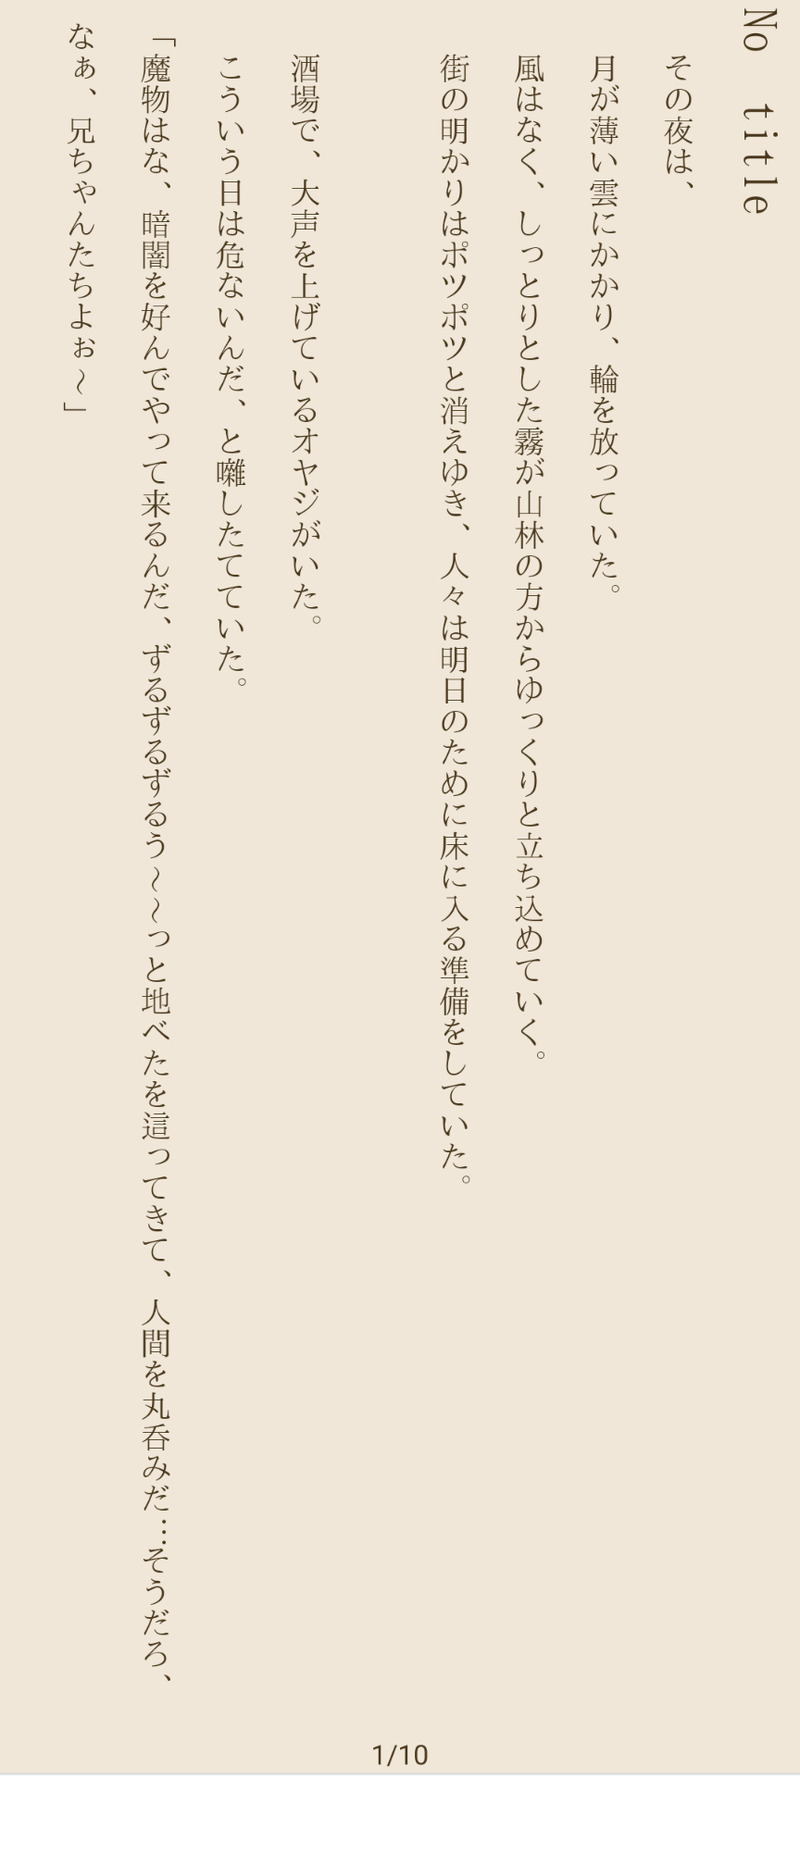 No title
その夜は、
月が薄い雲にかかり、輪を放っていた。
風はなく、しっとりとした霧が山林の方からゆっくりと立ち込めていく。
街の明かりはポツポツと消えゆき、人々は明日のために床に入る準備をしていた。
酒場で、大声を上げているオヤジがいた。
こういう日は危ないんだ、と囃したてていた。
「魔物はな、暗闇を好んでやって来るんだ、ずるずるずるう〜〜っと地べたを這ってきて、人間を丸呑みだ…そうだろ、
なぁ、兄ちゃんたちよぉ〜」
1/10